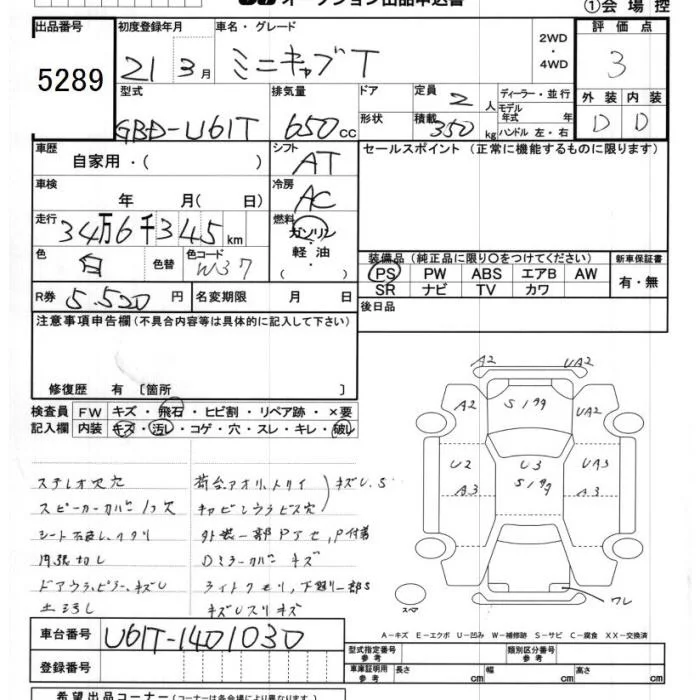 オークション出品申込書
①会場控
出品番号
5289
初度登録年月
21 3月
車名・グレード
ミニキャブT
2WD
・
4WD
評価点
3
外装 内装
D D
型式
GBD-U61T
排気量
650cc
ドア
形状
定員 2人
積載 350kg
ディーラー・並行
モデル年式 年
ハンドル 左・右
車歴
自家用・( )
シフト
AT
セールスポイント(正常に機能するものに限ります)
車検
年 月( 日)
冷房
AC
走行
34万6千345km
燃料
ガソリン
・
軽油
・
( )
色
白
色替
色コード
W37
装備品(純正品に限り○をつけてください)
新車保証書
PS PW ABS エアB AW
SR ナビ TV カワ
有・無
R券 5,520円
名変期限 月 日
後日品
注意事項申告欄(不具合内容等は具体的に記入して下さい)
修復歴 有 〔箇所 〕
検査員記入欄
FW キズ・飛石・ヒビ割・リペア跡・×要
内装 キズ・汚レ・コゲ・穴・スレ・キレ・破レ
ステレオ欠穴
スピーカーカバー1ヶ欠
内張切レ
外装一部Pアセ,P付着
Dミラーカバーキズ
A2
UA2
A2
UA2
U2
U3
UA3
A3
A3
ワレ
スペア
A-キズ E-エクボ U-凹み W-補修跡 S-サビ C-腐食 XX-交換済
車台番号
U61T-1401030
登録番号
型式指定番号
参考
類別区分番号
参考
車庫証明用
参考
長さ cm
幅 cm
高さ cm
希望出品コーナー(コーナーは各会場により異なります)